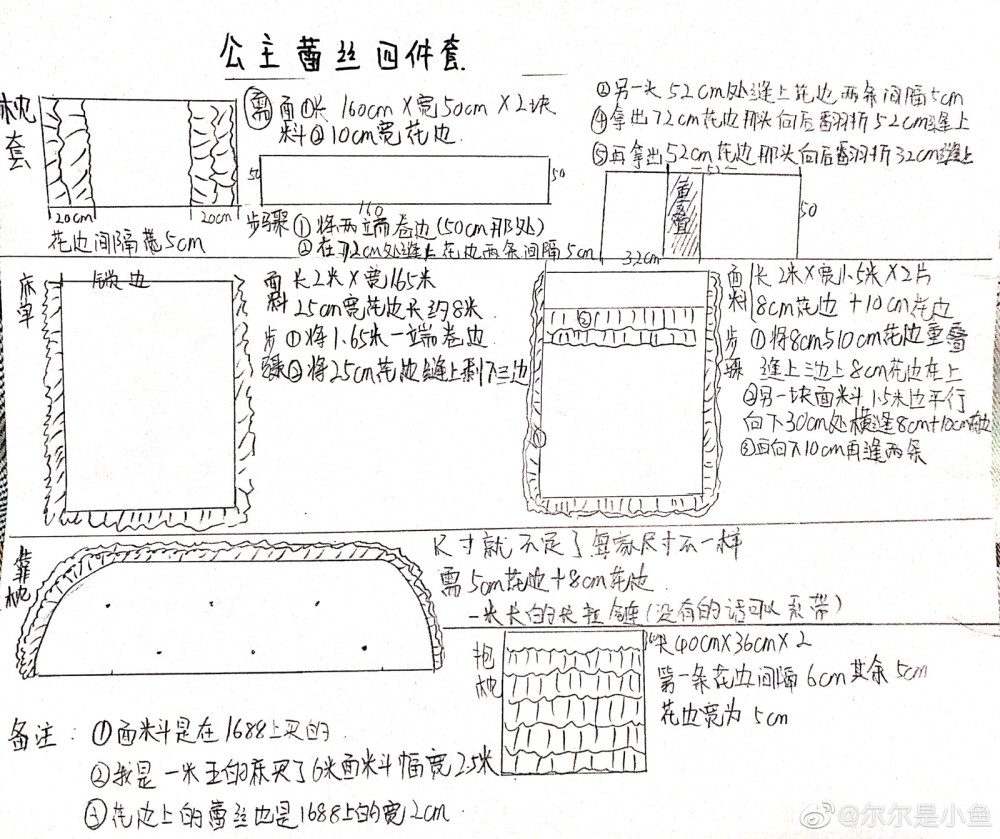 公主蕾丝四件套
枕套
20cm
20cm
花边间隔宽5cm
需 面料 ①长 160cm×宽50cm×2块
②10cm宽花边
50
50
160
步骤 ①将两端卷边(50cm那处)
②在72cm处缝上花边两条间隔5cm
③另一头52cm处缝上花边两条间隔5cm
④拿出72cm花边那头向后翻折52cm缝上
⑤再拿出52cm花边那头向后翻折32cm缝上
52
重叠
50
32cm
床单
锁边
面料 长2米×宽165米
25cm宽花边长约8米
步骤 ①将1.65米一端卷边
②将25cm花边缝上剩下三边
②
①
面料 长2米×宽1.5米×2片
8cm花边+10cm花边
步骤 ①将8cm与10cm花边重叠
缝上三边上8cm花边在上
②另一块面料1.5米边平行
向下30cm处横缝8cm+10cm花边
③再向下10cm再缝两条
靠枕
尺寸就不定了每家尺寸不一样
需5cm花边+8cm花边
一米长的长拉链(没有的话可以系带)
抱枕
长40cm×36cm×2
第一条花边间隔6cm其余5cm
花边宽为5cm
备注:①面料是在1688上买的
②我是一米五的床买了6米面料幅宽2.5米
③花边上的蕾丝也是1688上的宽2cm
@尔尔是小鱼